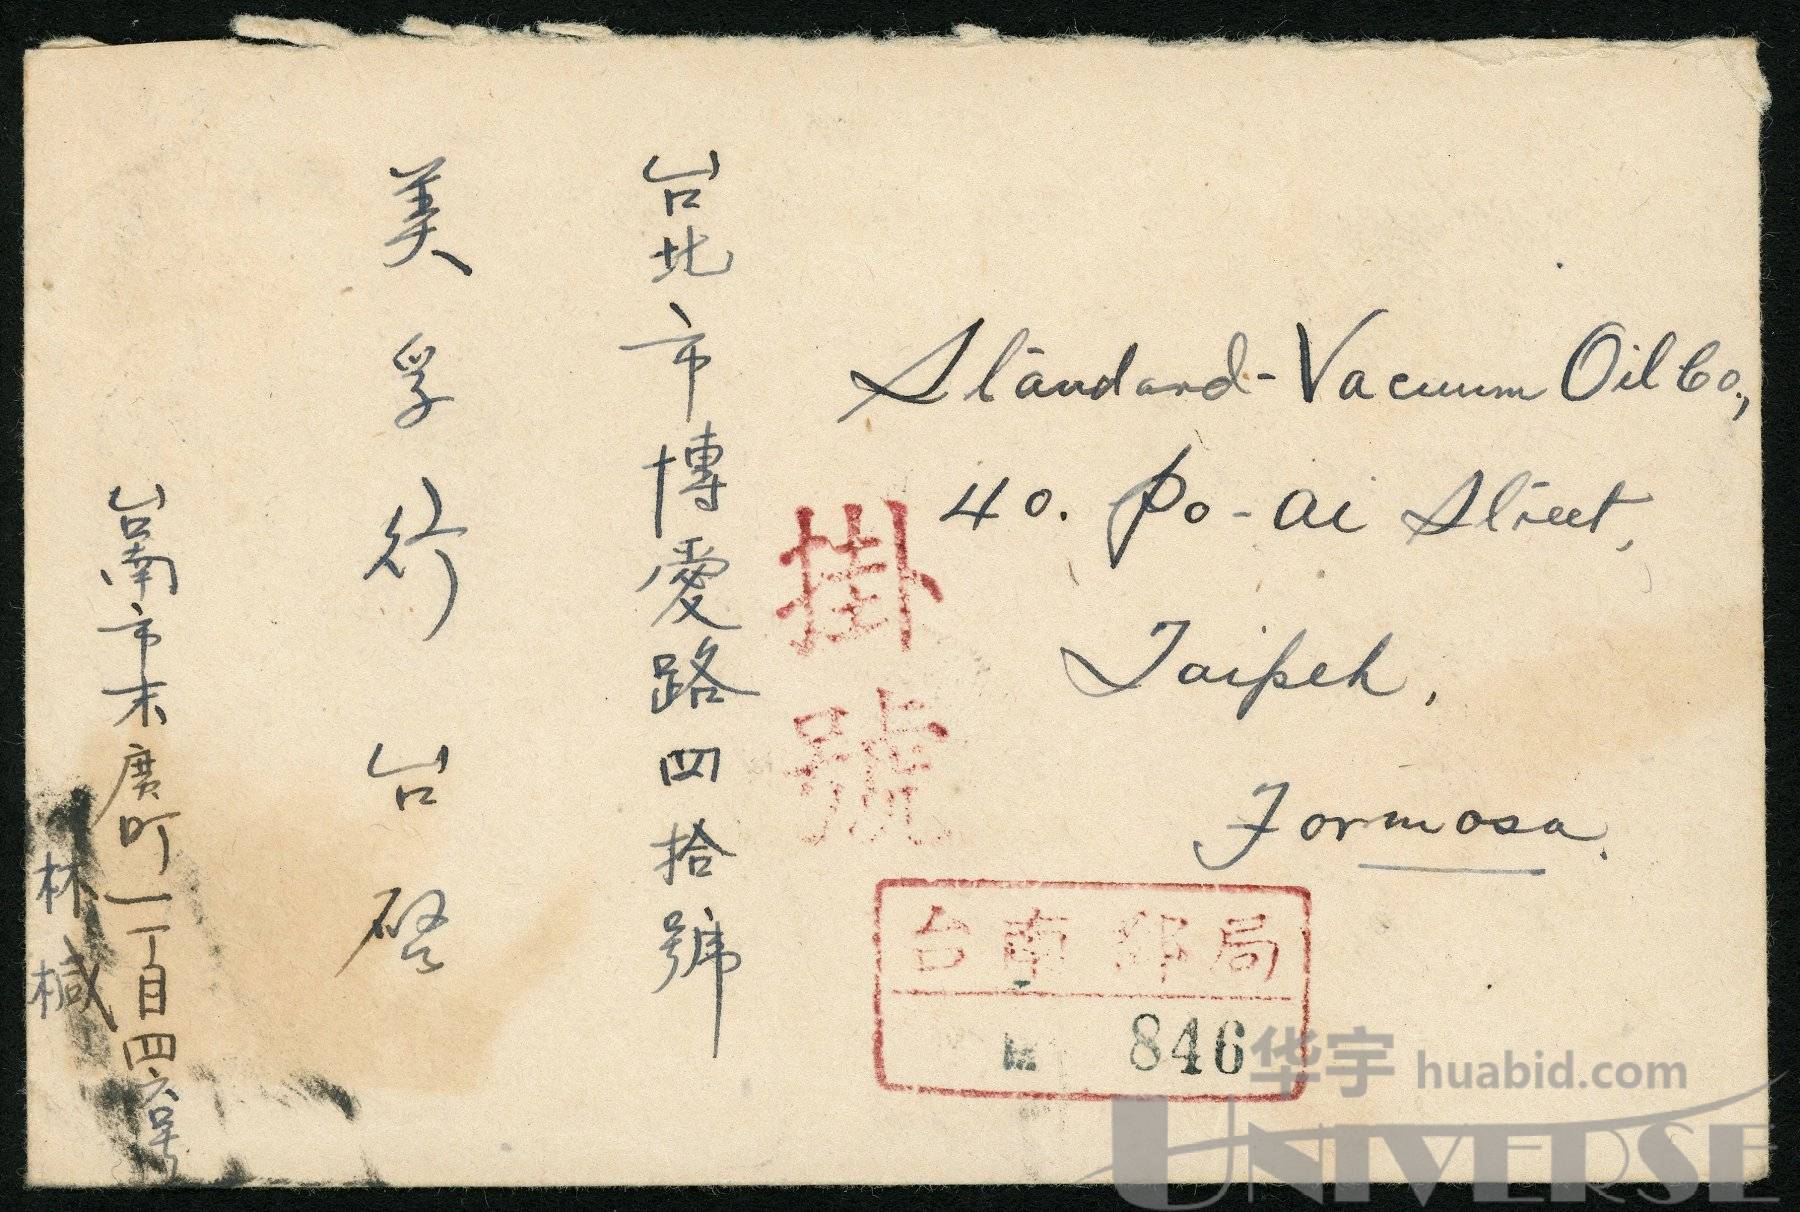 Standard-Vacuum Oil Co.,
40. Po-ai Street,
Taipeh,
Formosa.
台北市博愛路四拾號
美孚行 台啓
台南市末廣町一丁目四六号
林棫
掛號
台南郵局
846
华宇 huabid.com
UNIVERSE